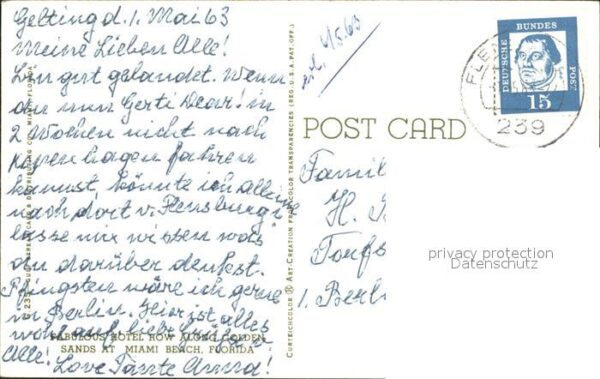 Gelting d. 1. Mai 63
Meine Lieben Alle!
Bin gut gelandet. Wenn
du nun Gerti Dear! in
2 Wochen nicht nach
Kopenhagen fahren
kannst, könnte ich alleine
nach dort v. Flensburg
lasse mir wissen was
du darüber denkst.
Pfingsten wäre ich gerne
in Berlin. Hier ist alles
wohlauf
Alle! Love Tante Anna!
4/5.63
POST CARD
DEUTSCHE BUNDES POST
15
FLE
239
Famil
H.
1 Berl
privacy protection
Datenschutz
FABULOUS HOTEL ROW ALONG GOLDEN
SANDS AT MIAMI BEACH, FLORIDA
CURTEICHCOLOR ® ART-CREATION FROM COLOR TRANSPARENCIES (REG. U.S.A. PAT. OFF.)